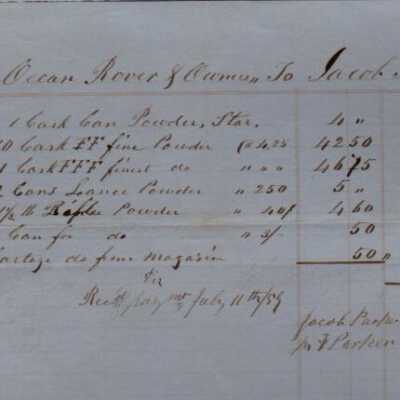 Ocean Rover & Owners To Jacob
1 Cask Can Powder, Star, 4 „
0 Cask FF fine Powder @ 4.25 42 50
1 Cask FFF finest do „ „ „ 46 75
2 Cans Lance Powder „ 2 50 5 „
1/2 lb Rifle Powder „ 40/ 4 60
Can for do „ 3/- 50
Cartage do from Magazin 50 „
Recd pay mt July 11th/59
Jacob Park
pr F Parker